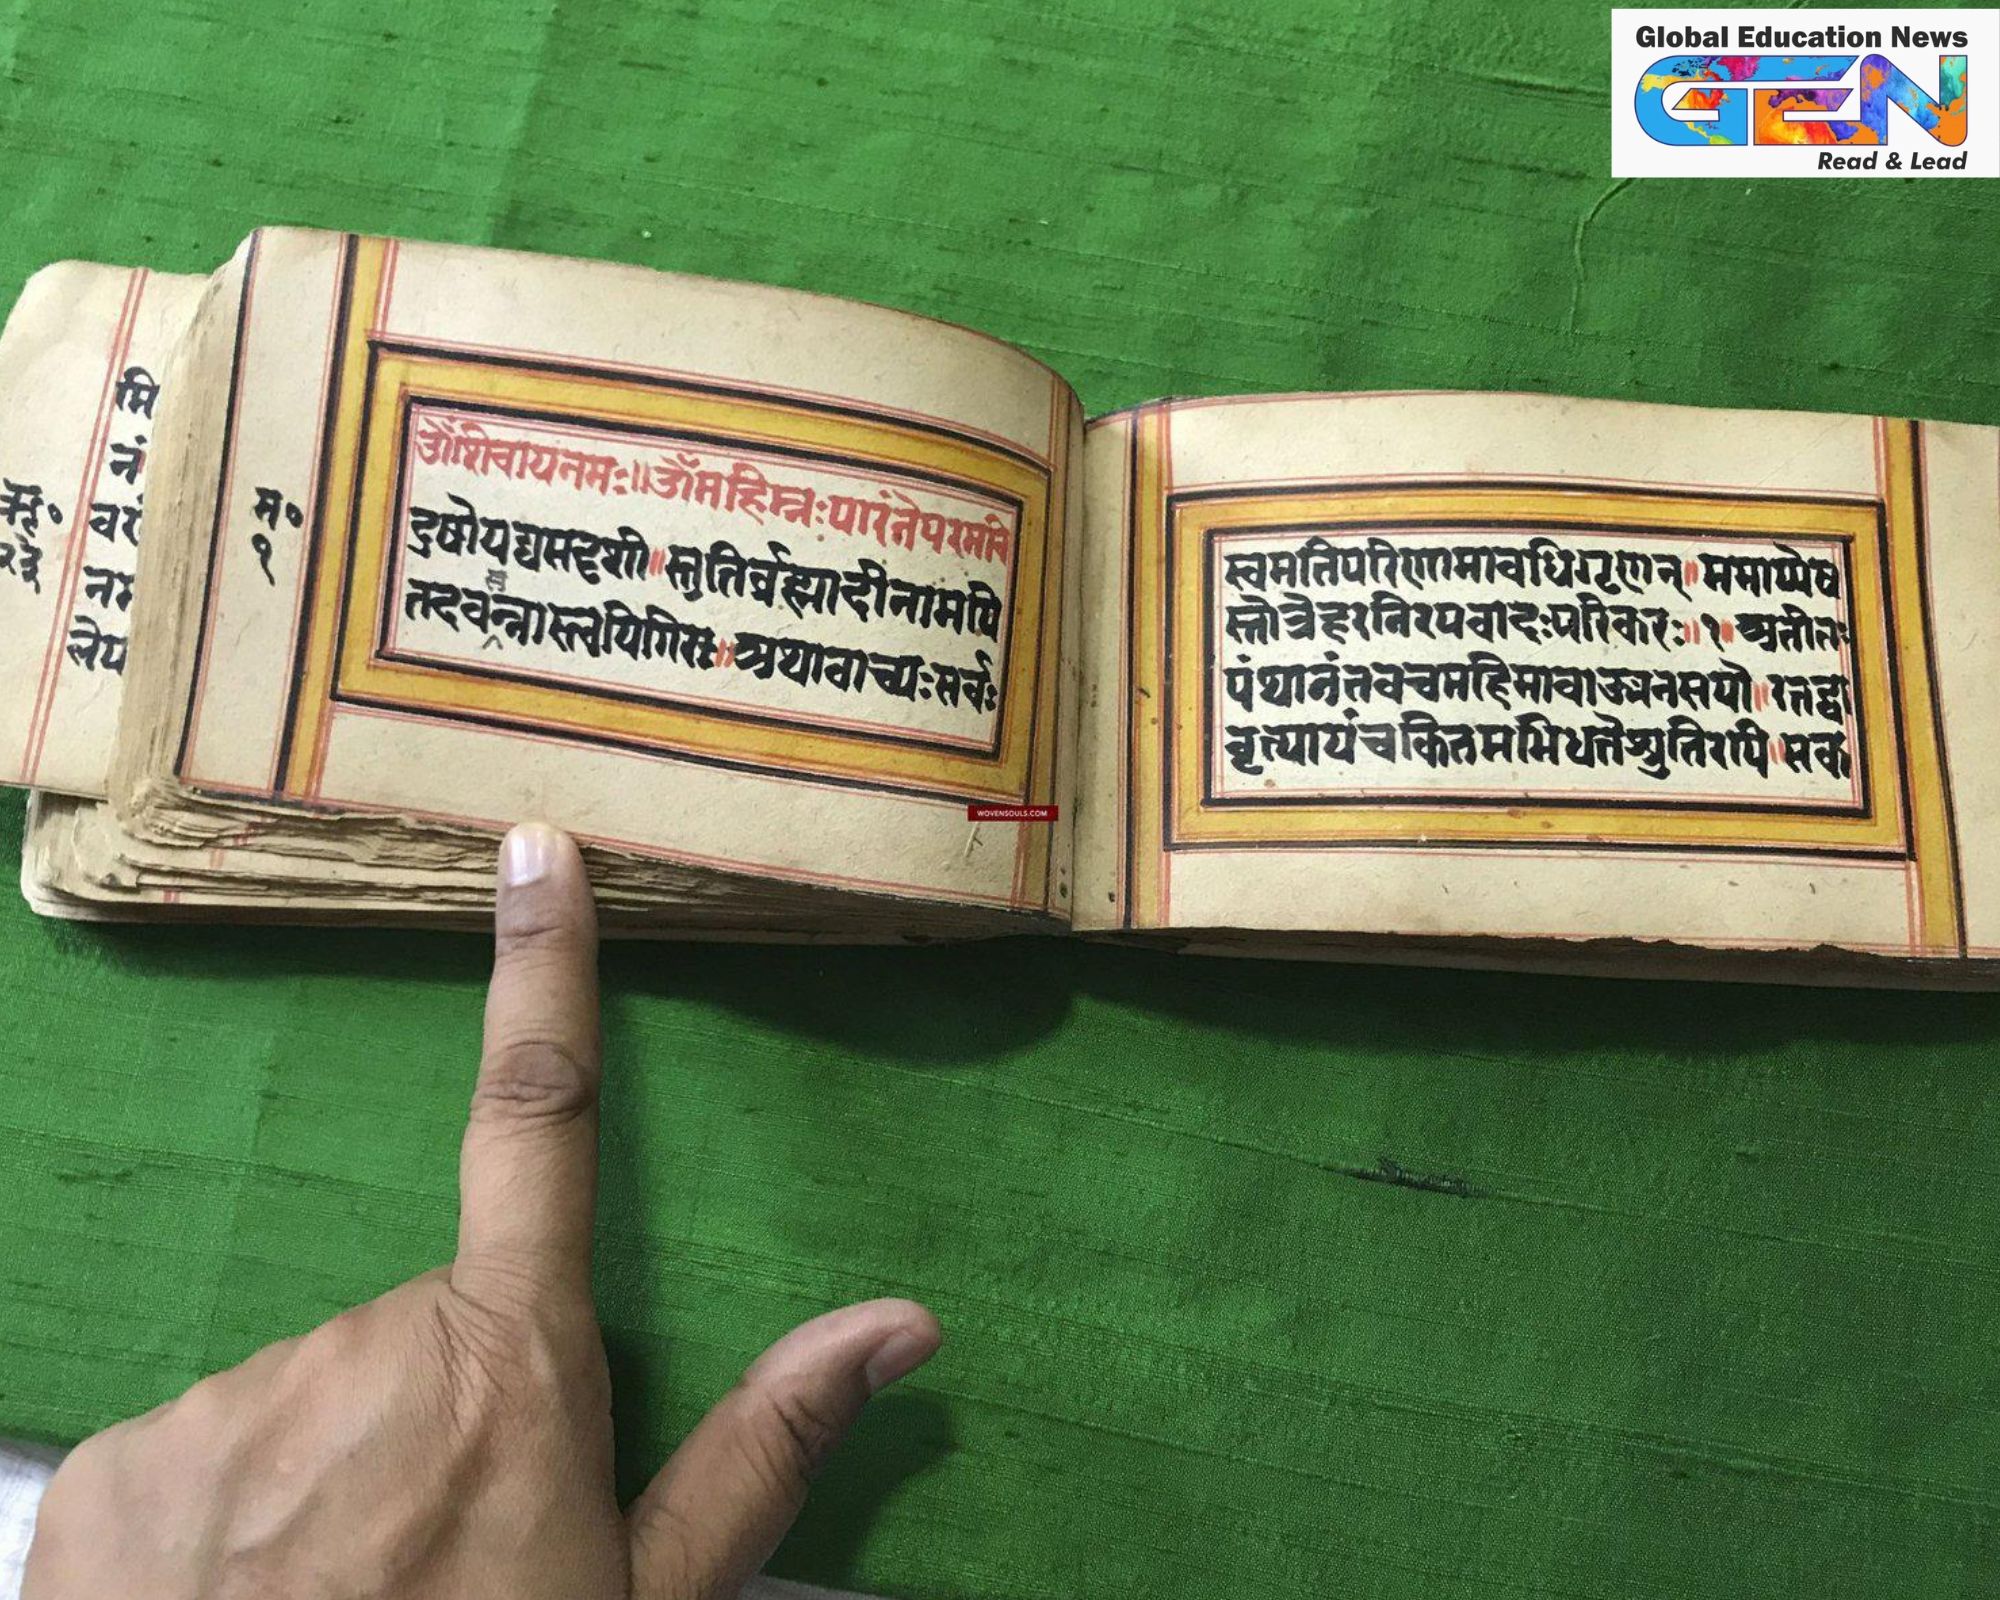 Global Education News
GEN
Read & Lead
मि
नं
वरं
नम
लेप
म०
१
ओंशिवायनमः॥ॐमहिम्नःपारंतेपरमवि
दुषोयद्यसदृशी॥स्तुतिर्ब्रह्मादीनामपि
स
तदवन्नास्त्वयिगिरः॥अथावाच्यःसर्वः
WOVENSOULS.COM
स्वमतिपरिणामावधिगृणन्॥ममाप्येष
स्तोत्रेहरनिरपवादःपरिकरः॥१॥अतीतः
पंथानंतवचमहिमावाङ्मनसयो॥रतद्व्या
वृत्त्यायंचकितमभिधत्तेश्रुतिरपि॥सक